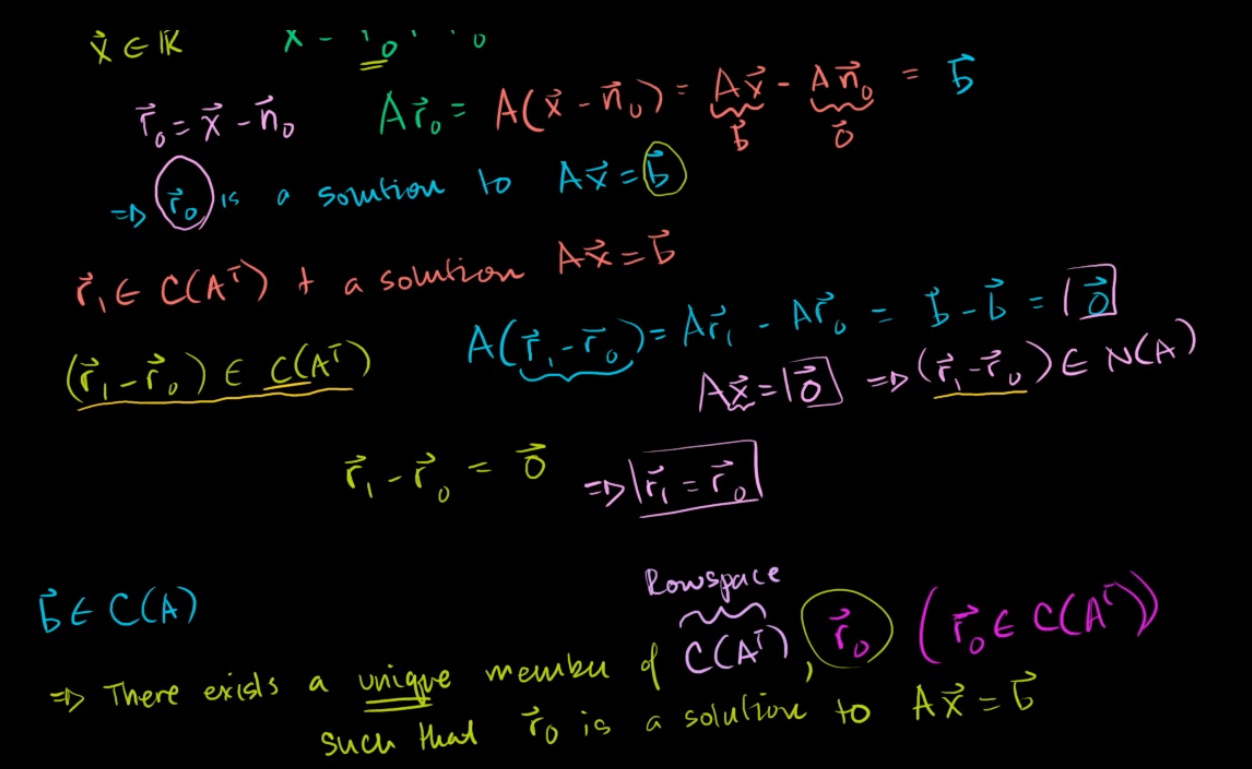 x⃗ ∈ ℝ
r⃗₀ = x⃗ - n⃗₀ Ar⃗₀ = A(x⃗ - n⃗₀) = Ax⃗ - An⃗₀ = b⃗
b⃗ 0⃗
⇒ r⃗₀ is a solution to Ax⃗ = b⃗
r⃗₁ ∈ C(Aᵀ) + a solution Ax⃗ = b⃗
A(r⃗₁ - r⃗₀) = Ar⃗₁ - Ar⃗₀ = b⃗ - b⃗ = 0⃗
(r⃗₁ - r⃗₀) ∈ C(Aᵀ) Ax⃗ = 0⃗ ⇒ (r⃗₁ - r⃗₀) ∈ N(A)
r⃗₁ - r⃗₀ = 0⃗ ⇒ r⃗₁ = r⃗₀
Rowspace
b⃗ ∈ C(A)
⇒ There exists a unique member of C(Aᵀ), r⃗₀ (r⃗₀ ∈ C(Aᵀ))
such that r⃗₀ is a solution to Ax⃗ = b⃗